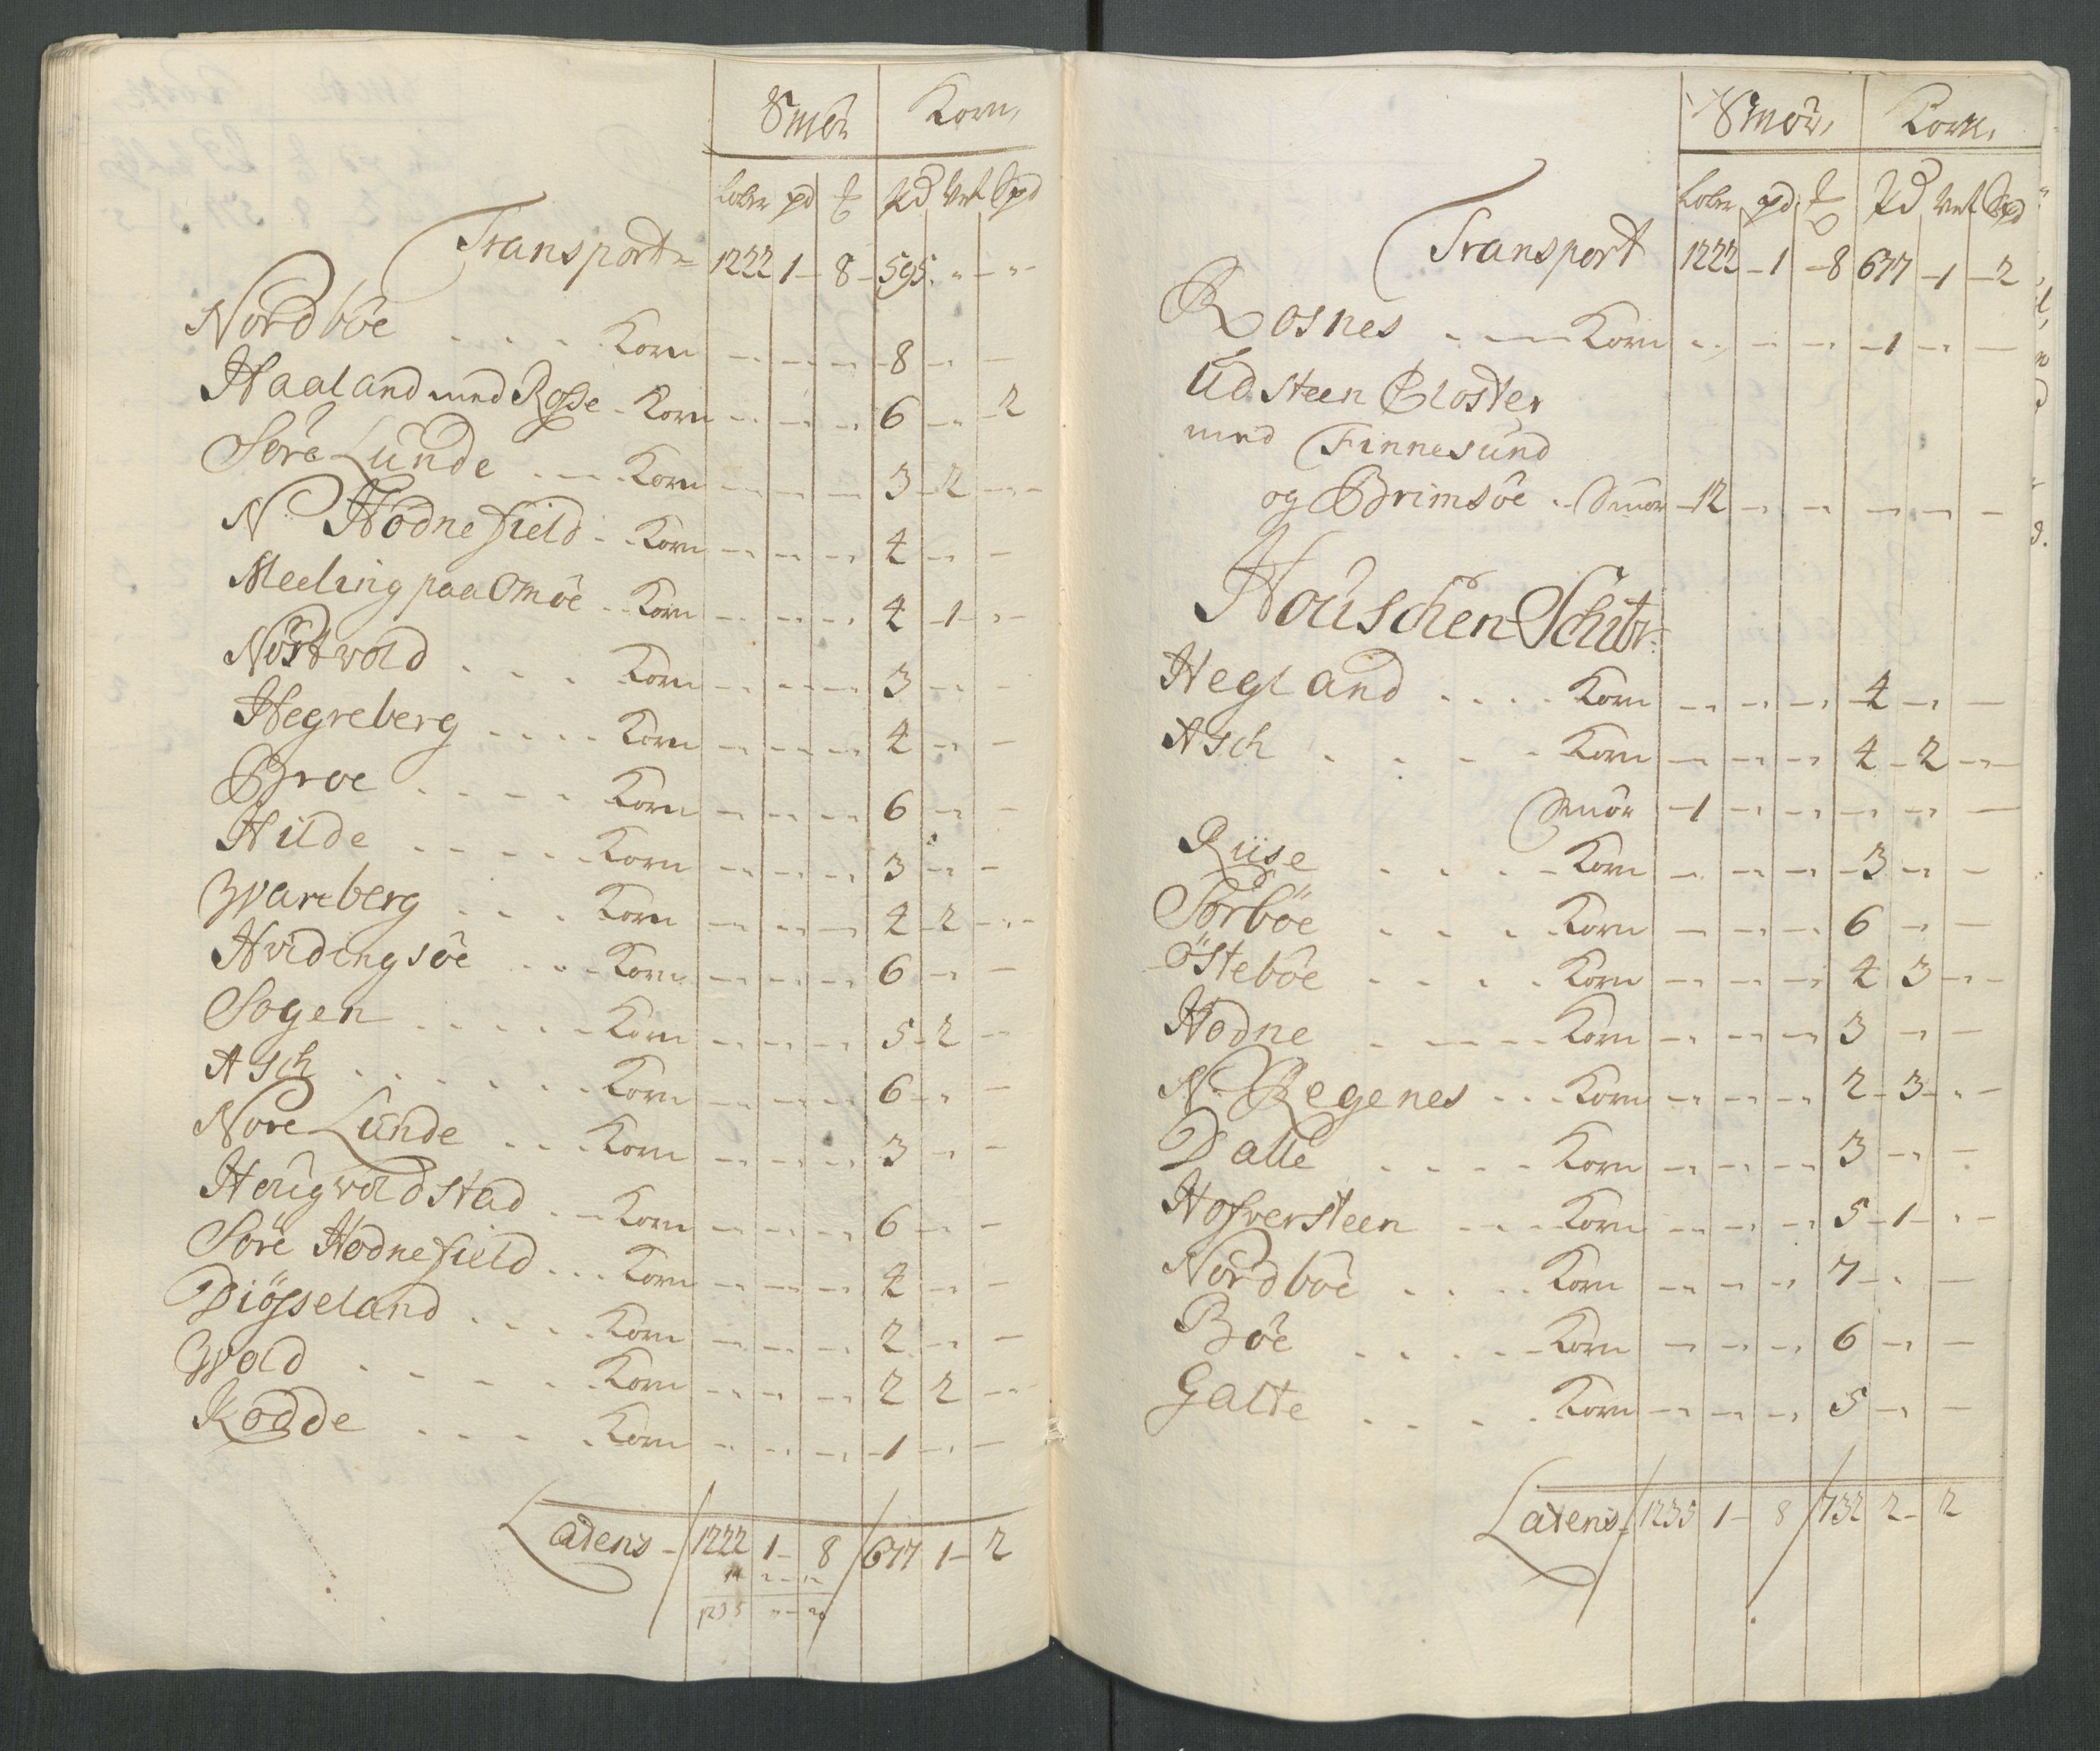 Smör Korn,
Løber pd ℔ Pd Vet Spd
Transport 1222 1 8 595 " "
Nordböe Korn 8
Haaland med Rosse Korn 6 " 2
Söre Lunde Korn 3 2
N. Hodnefield Korn 4
Meeling paa Omöe Korn 4 1
Nörtvold Korn 3
Hegreberg Korn 4
Broe Korn 6
Hilde Korn 3
Wareberg Korn 4 2
Hvidingsöe Korn 6
Sogen Korn 5 2
Asch Korn 6
Nore Lunde Korn 3
Hougvoldstad Korn 6
Söre Hodnefield Korn 4
Diösseland Korn 2
Wold Korn 2 2
Kodde Korn 1
Latens 1222 1 8 677 1 2
Smör, Korn,
Løber pd ℔ Pd Vet Spd
Transport 1222 1 8 677 1 2
Rosnes Korn 1
Udsteen Closter
med Finnesund
og Brimsöe Smör 12
Houschen Schibr:
Hegland Korn 4
Asch Korn 4 2
Smör 1
Riise Korn 3
Sörböe Korn 6
Östeböe Korn 4 3
Hodne Korn 3
N. Regenes Korn 2 3
Dalle Korn 3
Hofversteen Korn 5 1
Nordböe Korn 7
Böe Korn 6
Galte Korn 5
Latens 1235 1 8 732 2 2